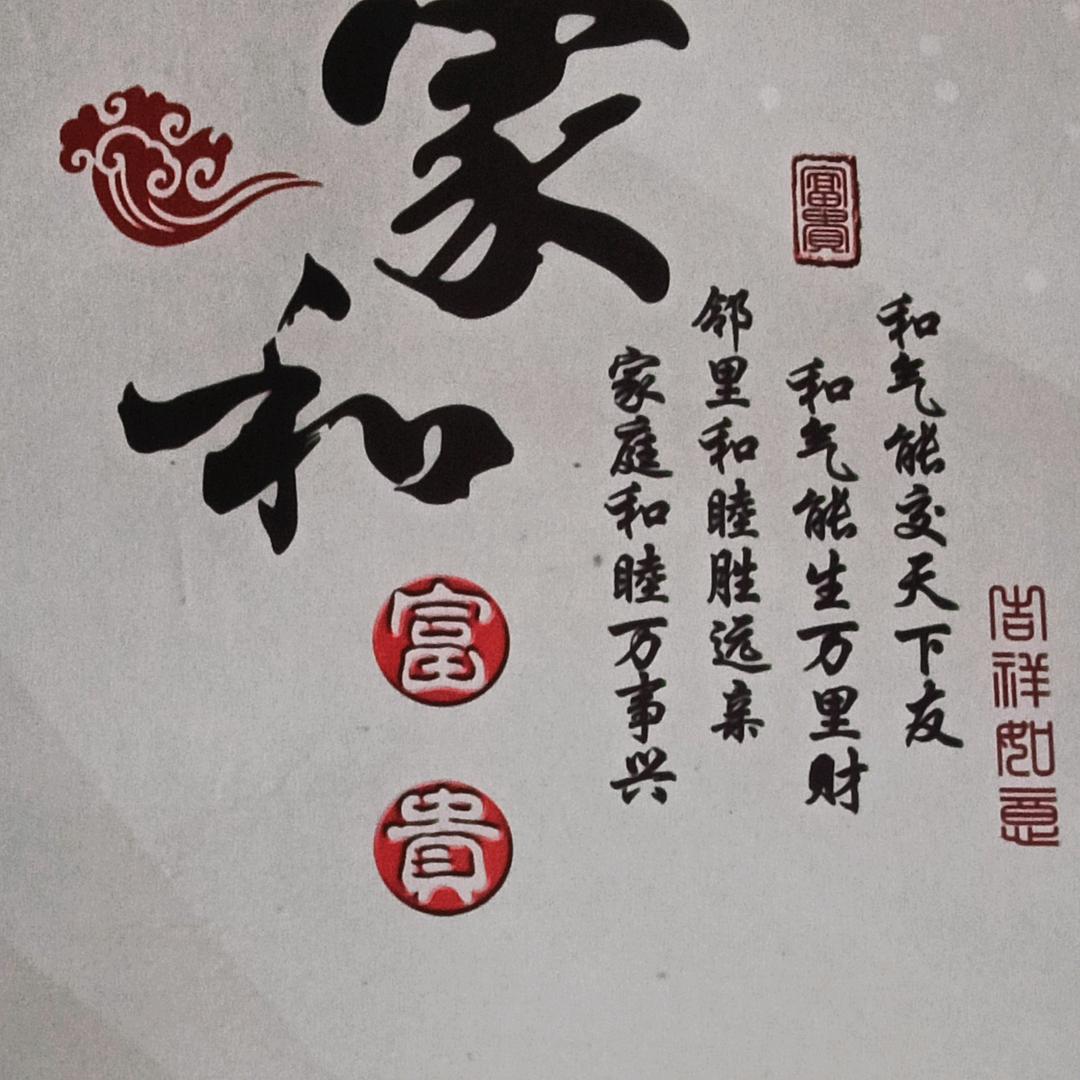 家和
富貴
富貴
和气能交天下友
和气能生万里财
邻里和睦胜远亲
家庭和睦万事兴
吉祥如意